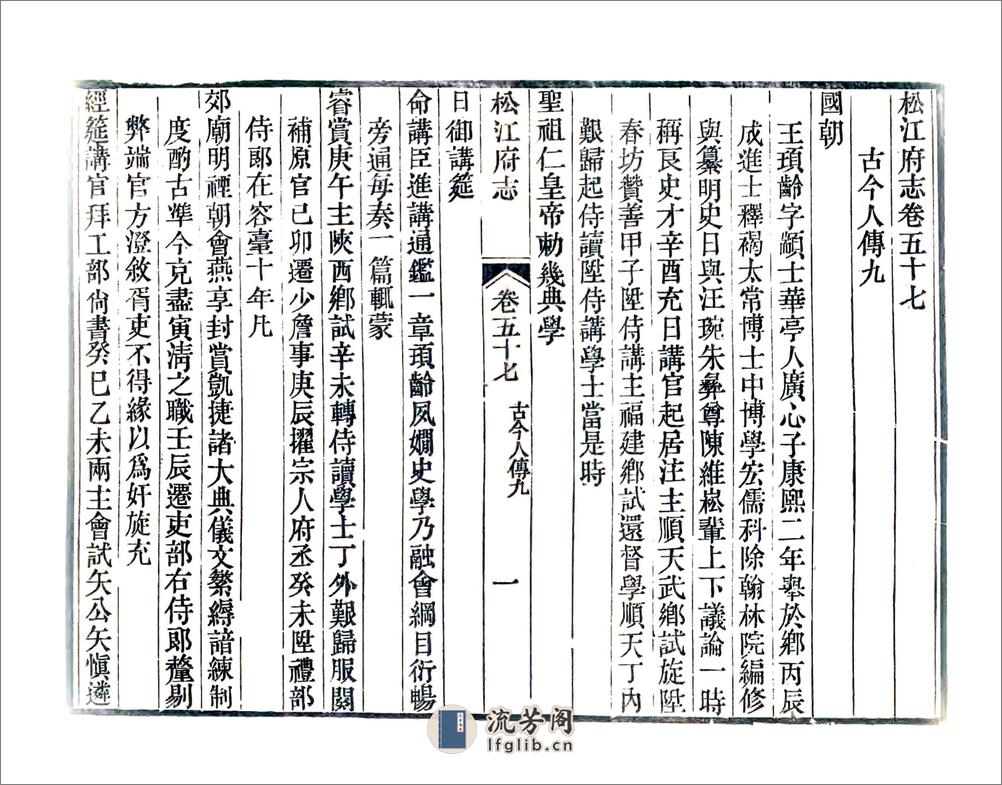 松江府志卷五十七
古今人傳九
國朝
王頊齡字顓士華亭人廣心子康熙二年舉於鄉丙辰
成進士釋褐太常博士中博學宏儒科除翰林院編修
與纂明史日與汪琬朱彝尊陳維崧輩上下議論一時
稱良史才辛酉充日講官起居注主順天武鄉試旋陞
春坊贊善甲子陞侍講主福建鄉試還督學順天丁內
艱歸起侍讀陞侍講學士當是時
聖祖仁皇帝勅幾典學
松江府志
卷五十七
古今人傳九
一
日御講筵
命講臣進講通鑑一章頊齡夙嫺史學乃融會綱目衍暢
旁通每奏一篇輒蒙
睿賞庚午主陝西鄉試辛未轉侍讀學士丁外艱歸服闋
補原官己卯遷少詹事庚辰擢宗人府丞癸未陞禮部
侍郎在容臺十年凡
郊廟明禋朝會燕享封賞凱捷諸大典儀文繁縟諳練制
度酌古準今克盡寅淸之職壬辰遷吏部右侍郎釐剔
弊端官方澄敘胥吏不得緣以爲奸旋充
經筵講官拜工部尙書癸巳乙未兩主會試矢公矢愼遴
流芳阁
lfglib.cn